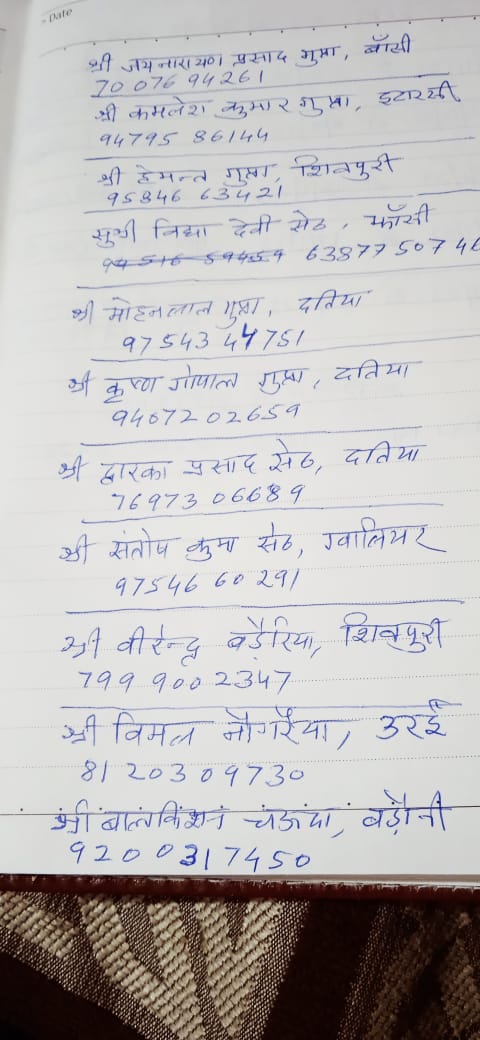 Date
श्री जयनारायण प्रसाद गुप्ता, बाँसी
70 076 94261
श्री कमलेश कुमार गुप्ता, इटारसी
94795 86144
श्री हेमन्त गुप्ता, शिवपुरी
95846 63421
सुश्री विद्या देवी सेठ, झाँसी
94516 59459 63877 507 46
श्री मोहनलाल गुप्ता, दतिया
97543 44751
श्री कृष्ण गोपाल गुप्ता, दतिया
9407202659
श्री द्वारका प्रसाद सेठ, दतिया
76973 06689
श्री संतोष कुमा सेठ, ग्वालियर
97546 60 291
श्री वीरेन्द्र बड़ैरिया, शिवपुरी
799 900 2347
श्री विमल नौगरैया, उरई
81 20309730
श्री बालकिशन चऊदा, बड़ौनी
9200317450